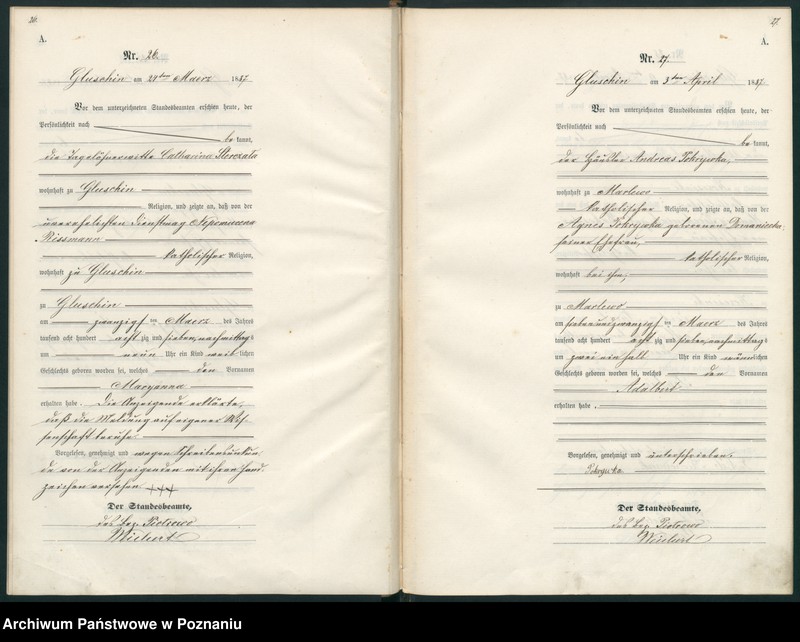 26.
A.
Nr. 26.
Gluschin am 24ten Maerz 1887
Vor dem unterzeichneten Standesbeamten erschien heute, der
Persönlichkeit nach
be kannt,
die Tagelöhnerwittwe Catharina
wohnhaft zu Gluschin
Religion, und zeigte an, daß von der
unverehelichten Dienstmagd Nepomucena
Rissmann
katholischer Religion,
wohnhaft zu Gluschin
zu Gluschin
am zwanzigsten Maerz des Jahres
tausend acht hundert acht zig und sieben, nachmittags
um neun Uhr ein Kind weib lichen
Geschlechts geboren worden sei, welches den Vornamen
Maryanna
erhalten habe. Die Anzeigende erklärte,
daß die Meldung auf eigener Wis-
senschaft beruhe
Vorgelesen, genehmigt und wegen Schreibensunkun-
de von der Anzeigenden mit ihrem Hand
zeichen versehen +++
Der Standesbeamte,
des Bez. Piotrowo
27.
A.
Nr. 27.
Gluschin am 3ten April 1887.
Vor dem unterzeichneten Standesbeamten erschien heute, der
Persönlichkeit nach
be kannt,
der Häusler Andreas Pokrywka,
wohnhaft zu Marlewo
katholischer Religion, und zeigte an, daß von der
Agnes Pokrywka geborenen Domaniecka
seiner Ehefrau,
katholischer Religion,
wohnhaft bei ihm,
zu Marlewo
am siebenundzwanzigsten Maerz des Jahres
tausend acht hundert acht zig und sieben, nachmittags
um zwei ein halb Uhr ein Kind männ lichen
Geschlechts geboren worden sei, welches den Vornamen
Adalbert
erhalten habe.
Vorgelesen, genehmigt und unterschrieben:
Pokrywka
Der Standesbeamte,
des Bez. Piotrowo
Archiwum Państwowe w Poznaniu